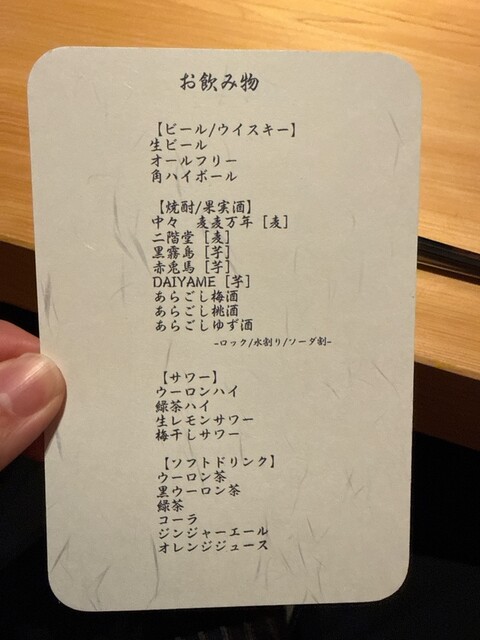 お飲み物
【ビール/ウイスキー】
生ビール
オールフリー
角ハイボール
【焼酎/果実酒】
中々　麦麦万年［麦］
二階堂［麦］
黒霧島［芋］
赤兎馬［芋］
DAIYAME［芋］
あらごし梅酒
あらごし桃酒
あらごしゆず酒
-ロック/水割り/ソーダ割-
【サワー】
ウーロンハイ
緑茶ハイ
生レモンサワー
梅干しサワー
【ソフトドリンク】
ウーロン茶
黒ウーロン茶
緑茶
コーラ
ジンジャーエール
オレンジジュース